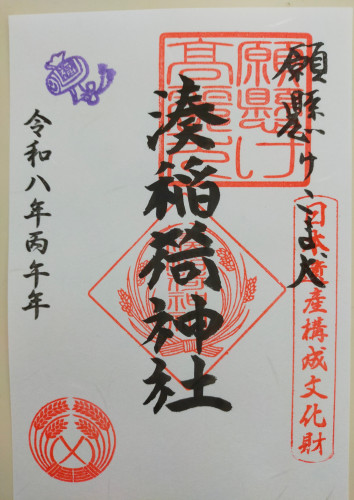 願懸けこま犬
日本遺産構成文化財
願懸け
高麗犬
湊稲荷神社
令和八年丙午年